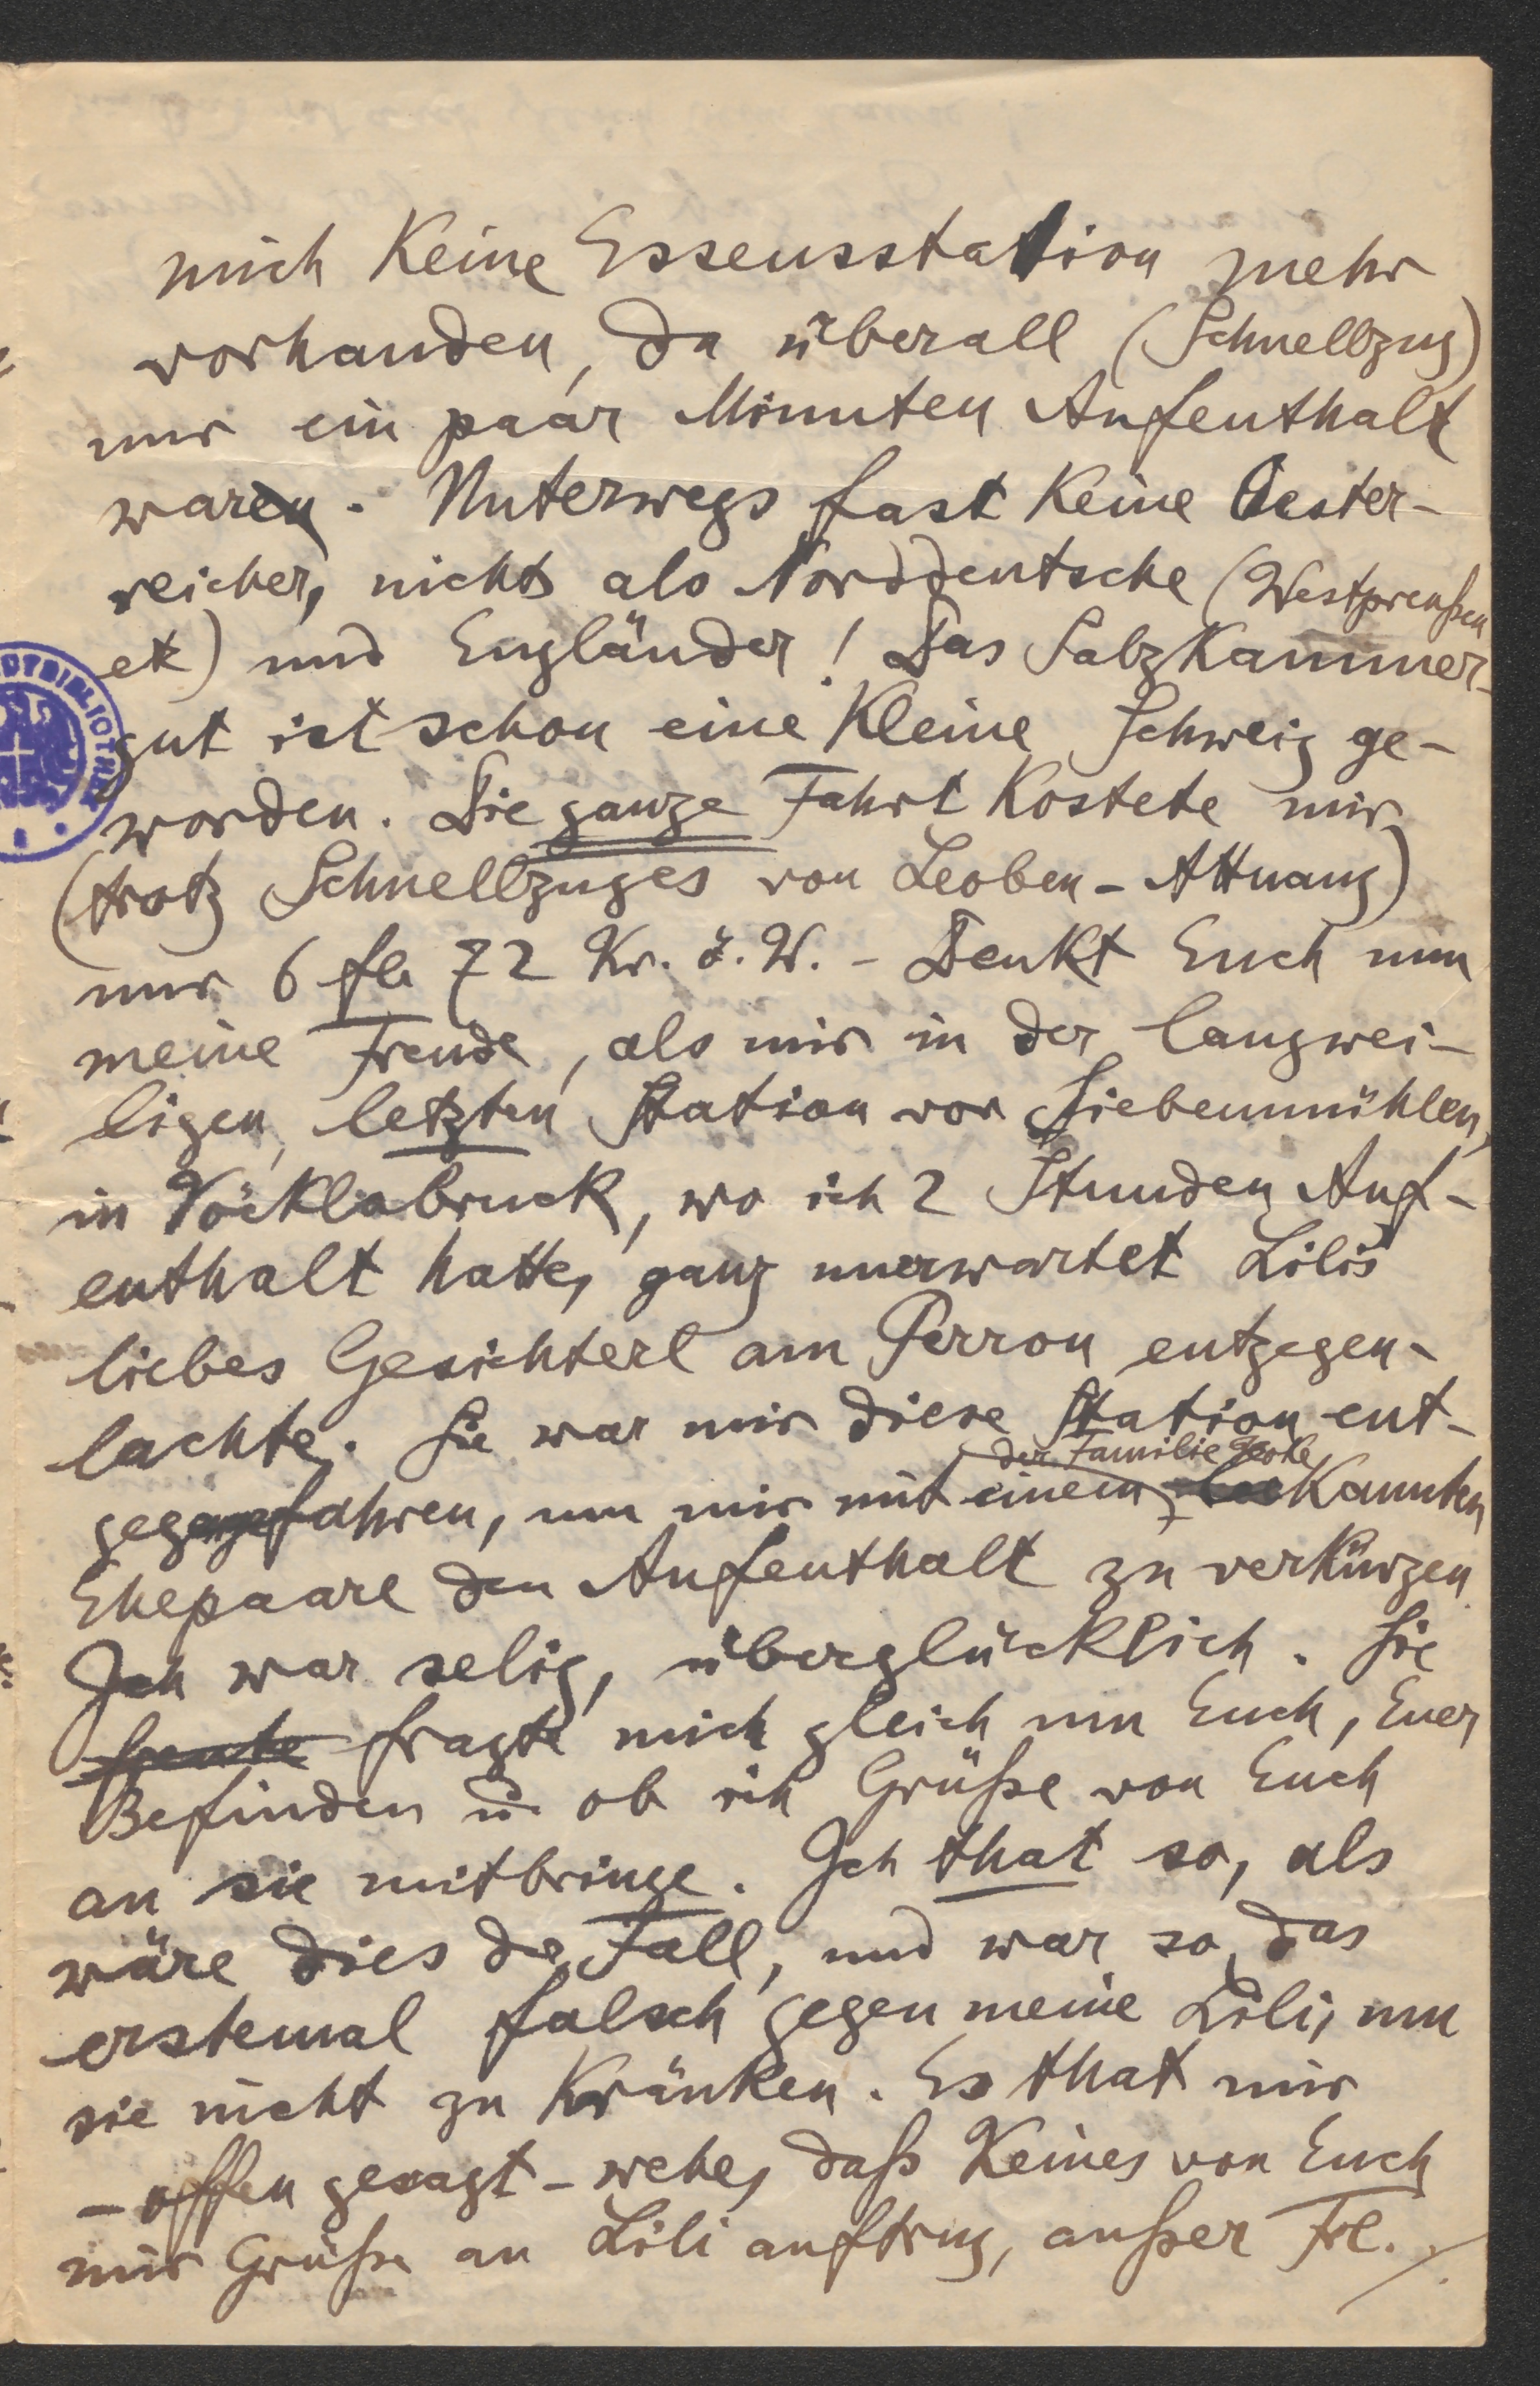 mich keine Essensstation mehr
vorhanden, da überall (Schnellzug)
nur ein paar Minuten Aufenthalt
waren. Unterwegs fast keine Oester-
reicher, nichts als Norddeutsche (Westpreußen
etc) und Engländer! Das Salzkammer-
gut ist schon eine kleine Schweiz ge-
worden. Die ganze Fahrt kostete mir
(trotz Schnellzuges von Leoben-Attnang)
nur 6 fl. 72 Kr. ö. W. - Denkt Euch nun
meine Freude, als mir in der langwei-
ligen, letzten Station vor Siebenmühlen,
in Vöcklabruck, wo ich 2 Stunden Auf-
enthalt hatte, ganz unerwartet Lilis
liebes Gesichterl am Perron entgegen-
lachte. Sie war mir diese Station ent-
der Familie
gegengefahren, um mir mit einem bekannten
Ehepaare den Aufenthalt zu verkürzen.
Ich war selig, überglücklich. Sie
freute fragte mich gleich um Euch, Euer
Befinden u. ob ich Grüße von Euch
an sie mitbringe. Ich that so, als
wäre dies der Fall, und war so das
erstemal falsch gegen meine Lili, um
sie nicht zu kränken. Es that mir
- offen gesagt - wehe, daß Keines von Euch
mir Grüße an Lili auftrug, außer Frl. ./.